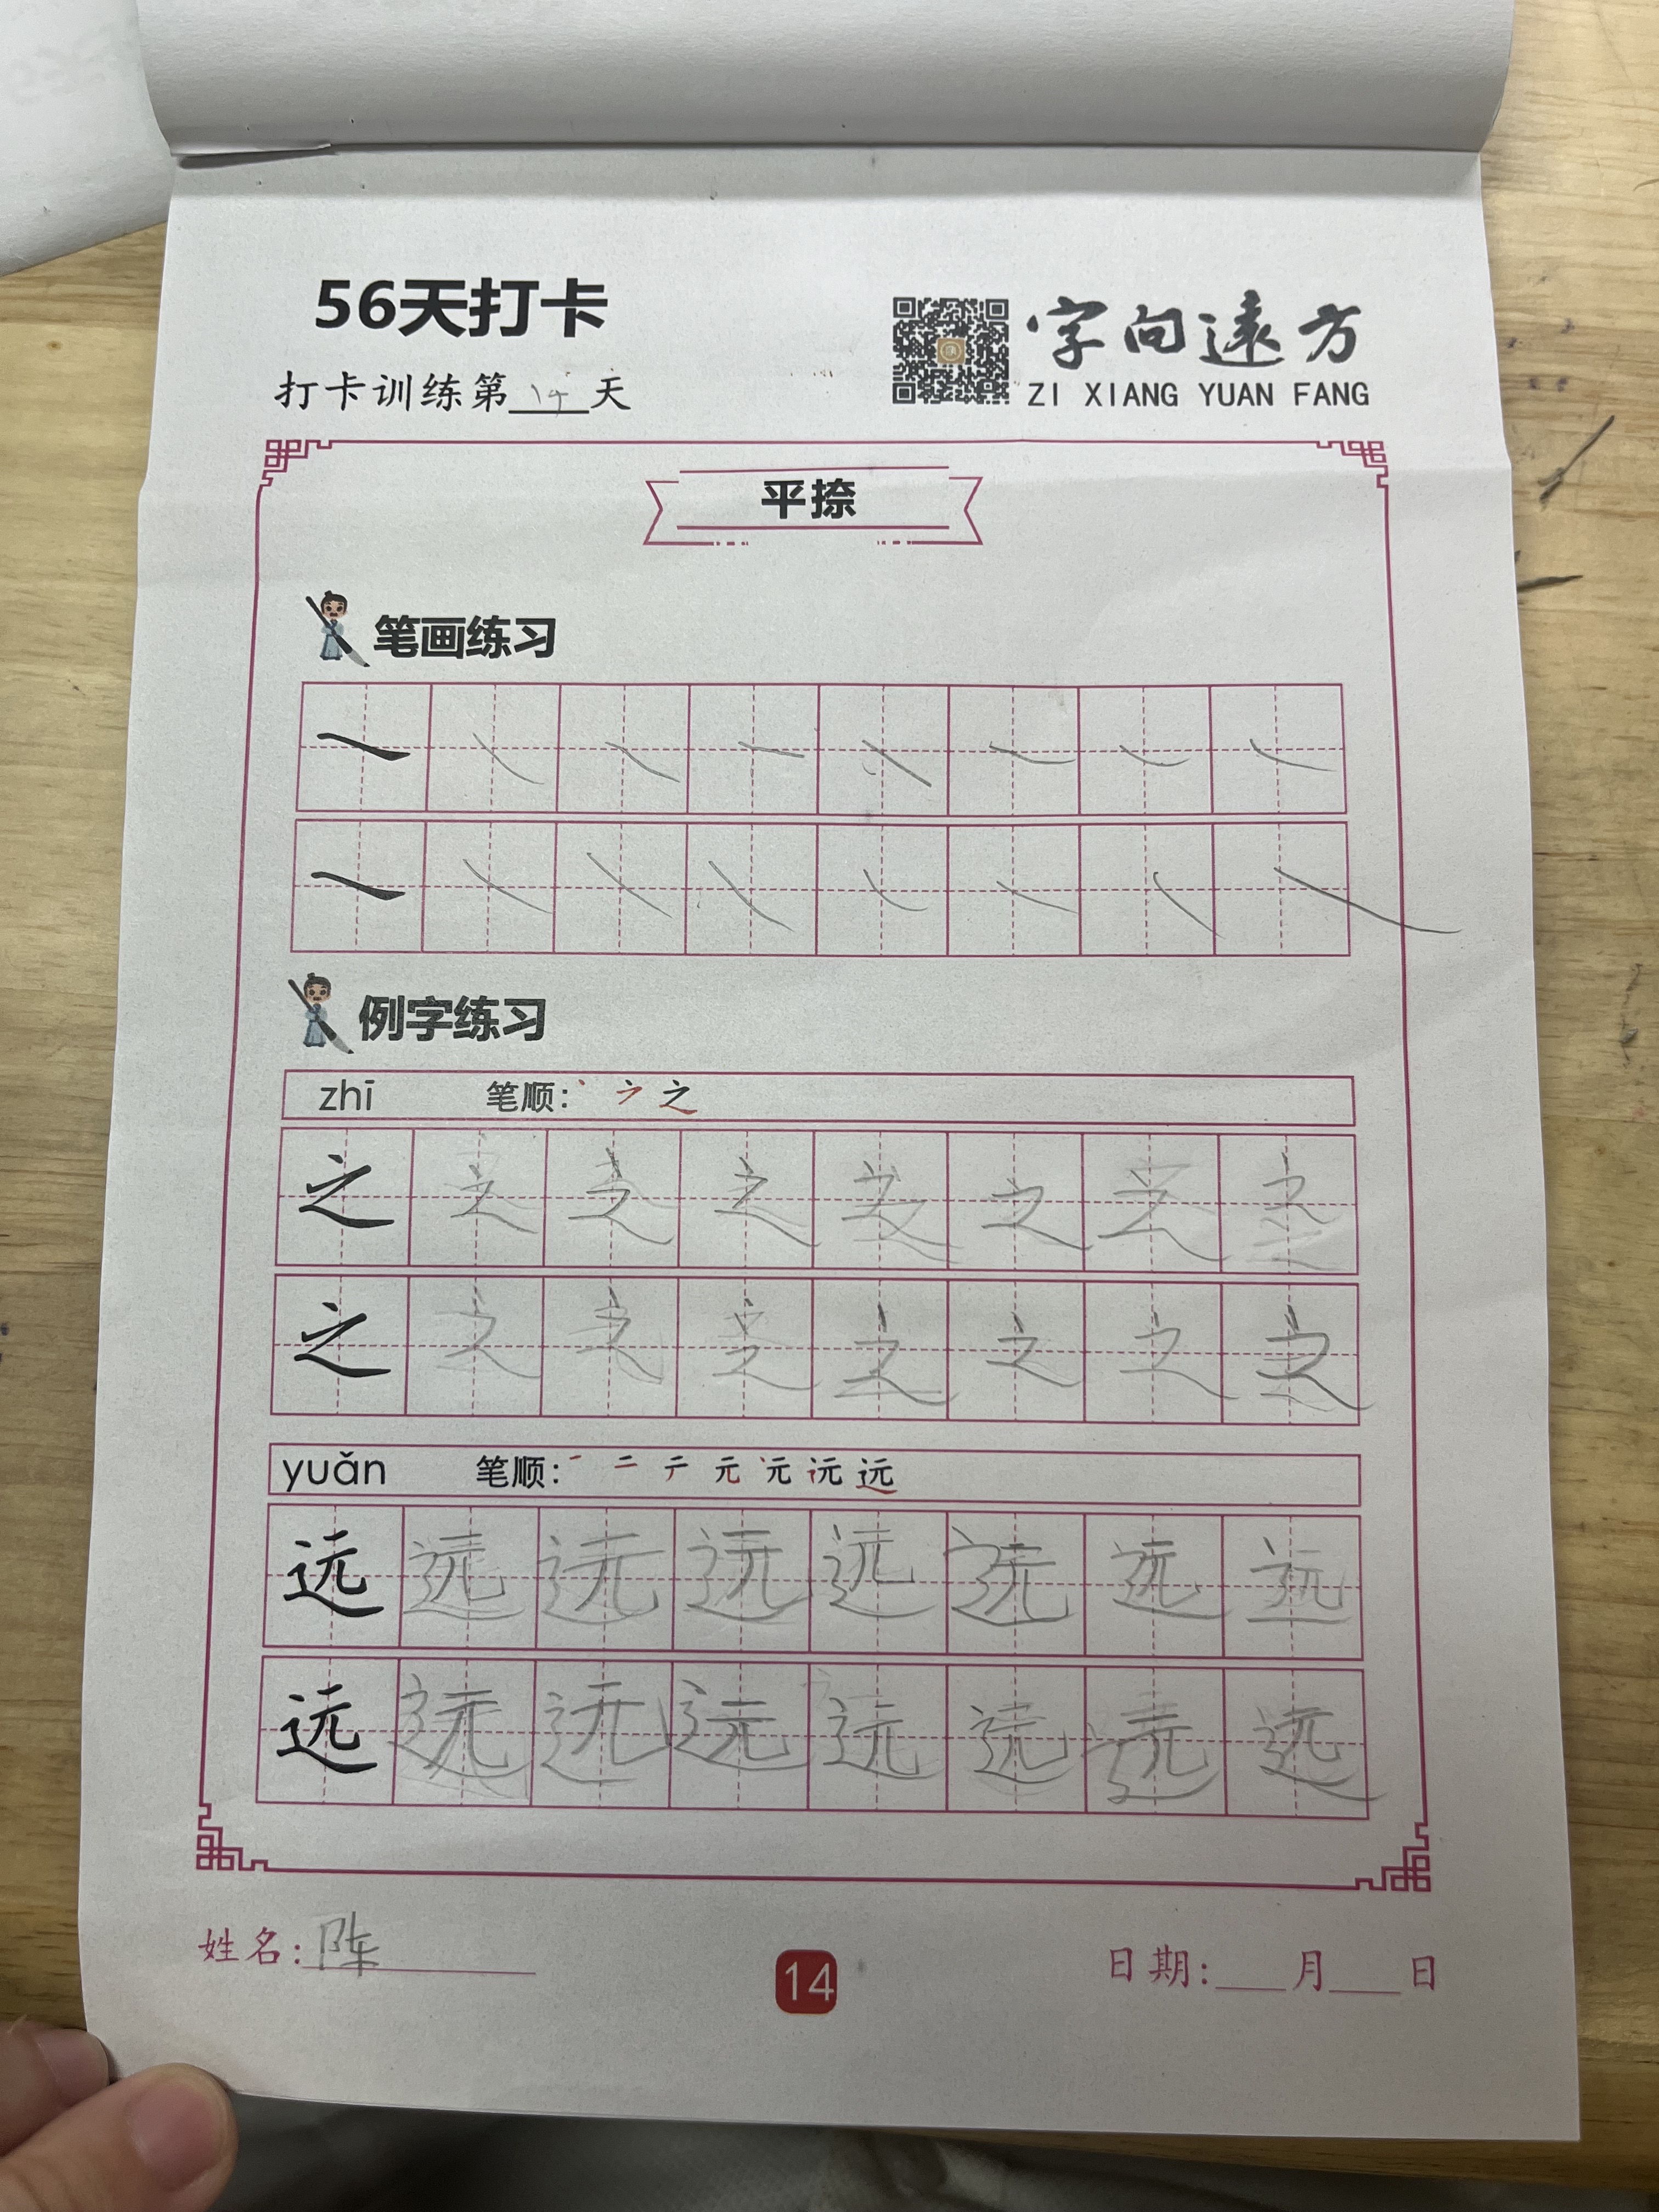 56天打卡
字向遠方
ZI XIANG YUAN FANG
打卡训练第14天
平捺
笔画练习
例字练习
zhī 笔顺: 之
之 之 之 之 之 之 之 之
之 之 之 之 之 之 之 之
yuǎn 笔顺: 一 二 テ 元 远
远 远 远 远 远 远 远 远
远 远 远 远 远 远 远 远
姓名: 陈
14
日期: 月 日